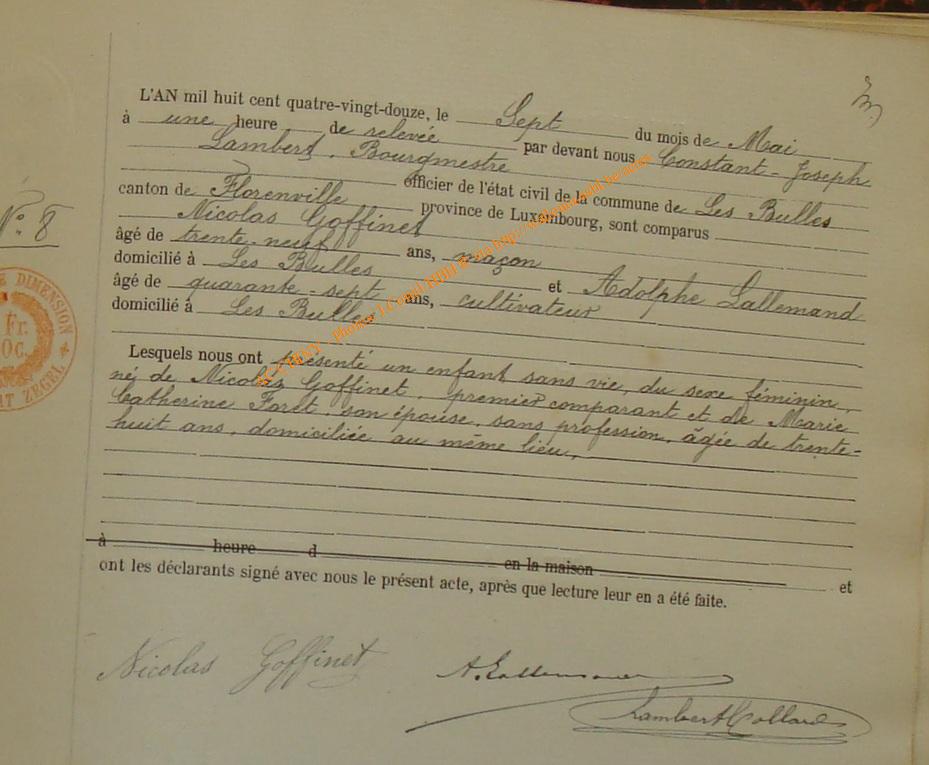 L'AN mil huit cent quatre-vingt-douze, le Sept du mois de Mai
à une heure de relevée par devant nous Constant-Joseph
Lambert, Bourgmestre officier de l'état civil de la commune de Les Bulles
canton de Florenville province de Luxembourg, sont comparus
Nicolas Goffinet
âgé de trente-neuf ans, maçon
domicilié à Les Bulles et Adolphe Lallemand
âgé de quarante-sept ans, cultivateur
domicilié à Les Bulles
Lesquels nous ont présenté un enfant sans vie, du sexe féminin,
né de Nicolas Goffinet, premier comparant et de Marie
Catherine Foret, son épouse, sans profession, âgée de trente-
huit ans, domiciliée au même lieu,
à heure d en la maison et
ont les déclarants signé avec nous le présent acte, après que lecture leur en a été faite.
Nicolas Goffinet
A. Lallemand
Lambert Collard
N° 8
DIMENSION
Fr.
ZEGEL